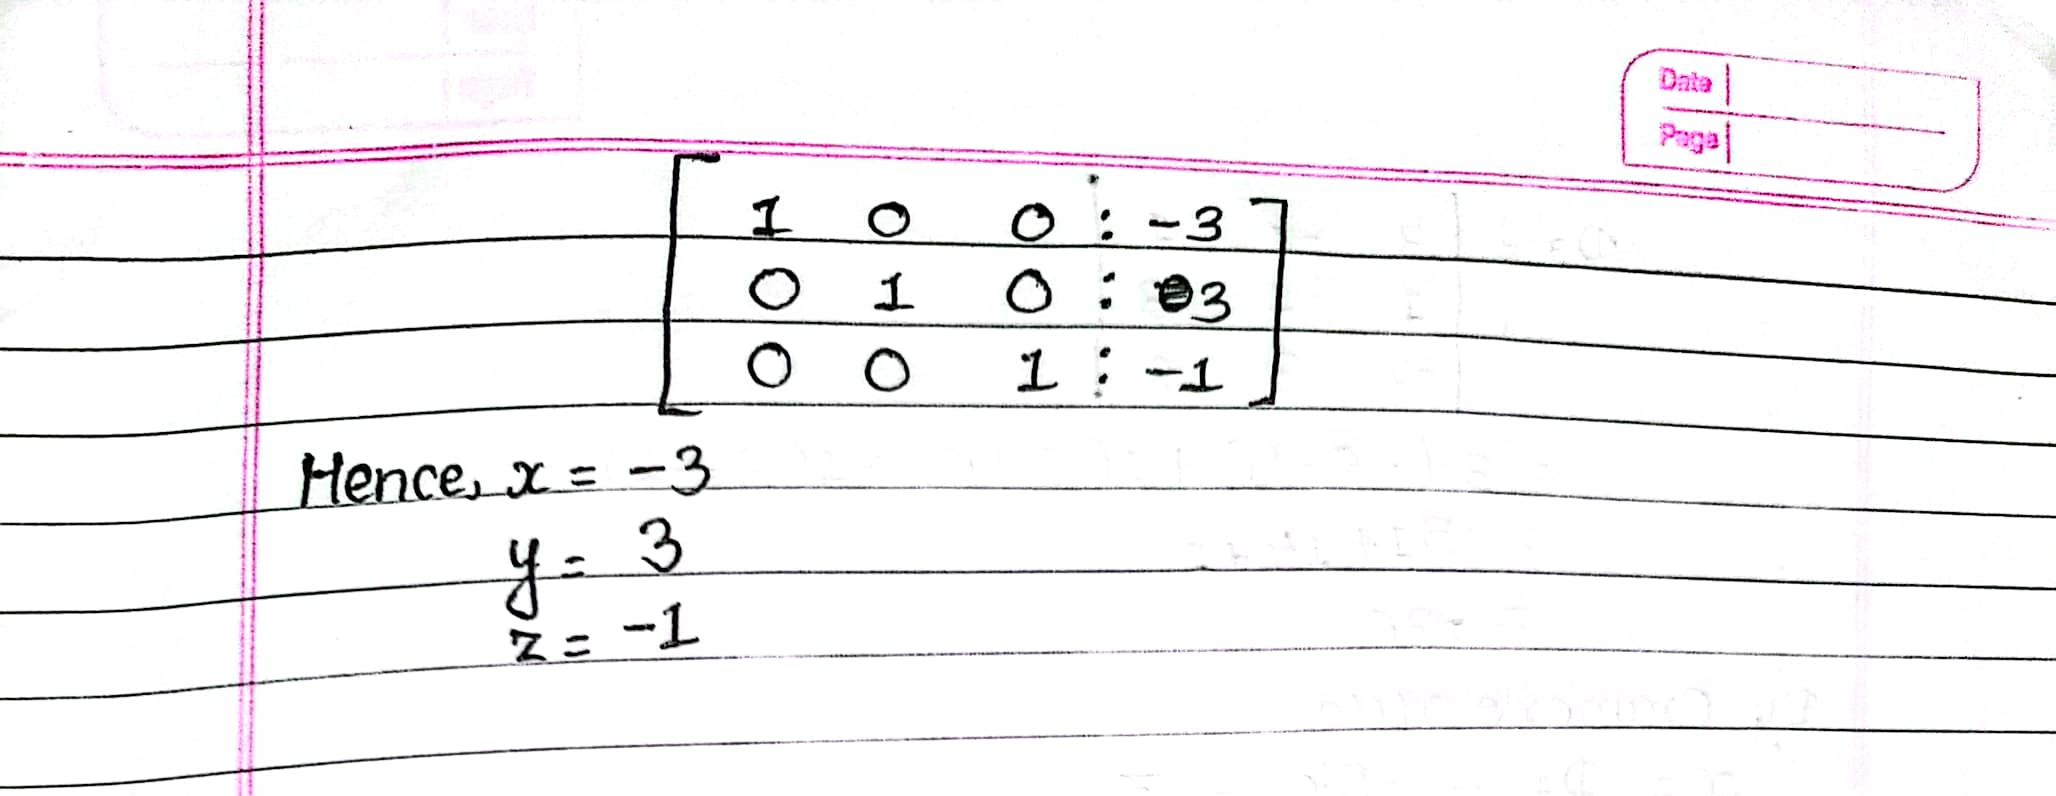 Date
Page
1 0 0 : -3
0 1 0 : 3
0 0 1 : -1
Hence, x = -3
y = 3
z = -1